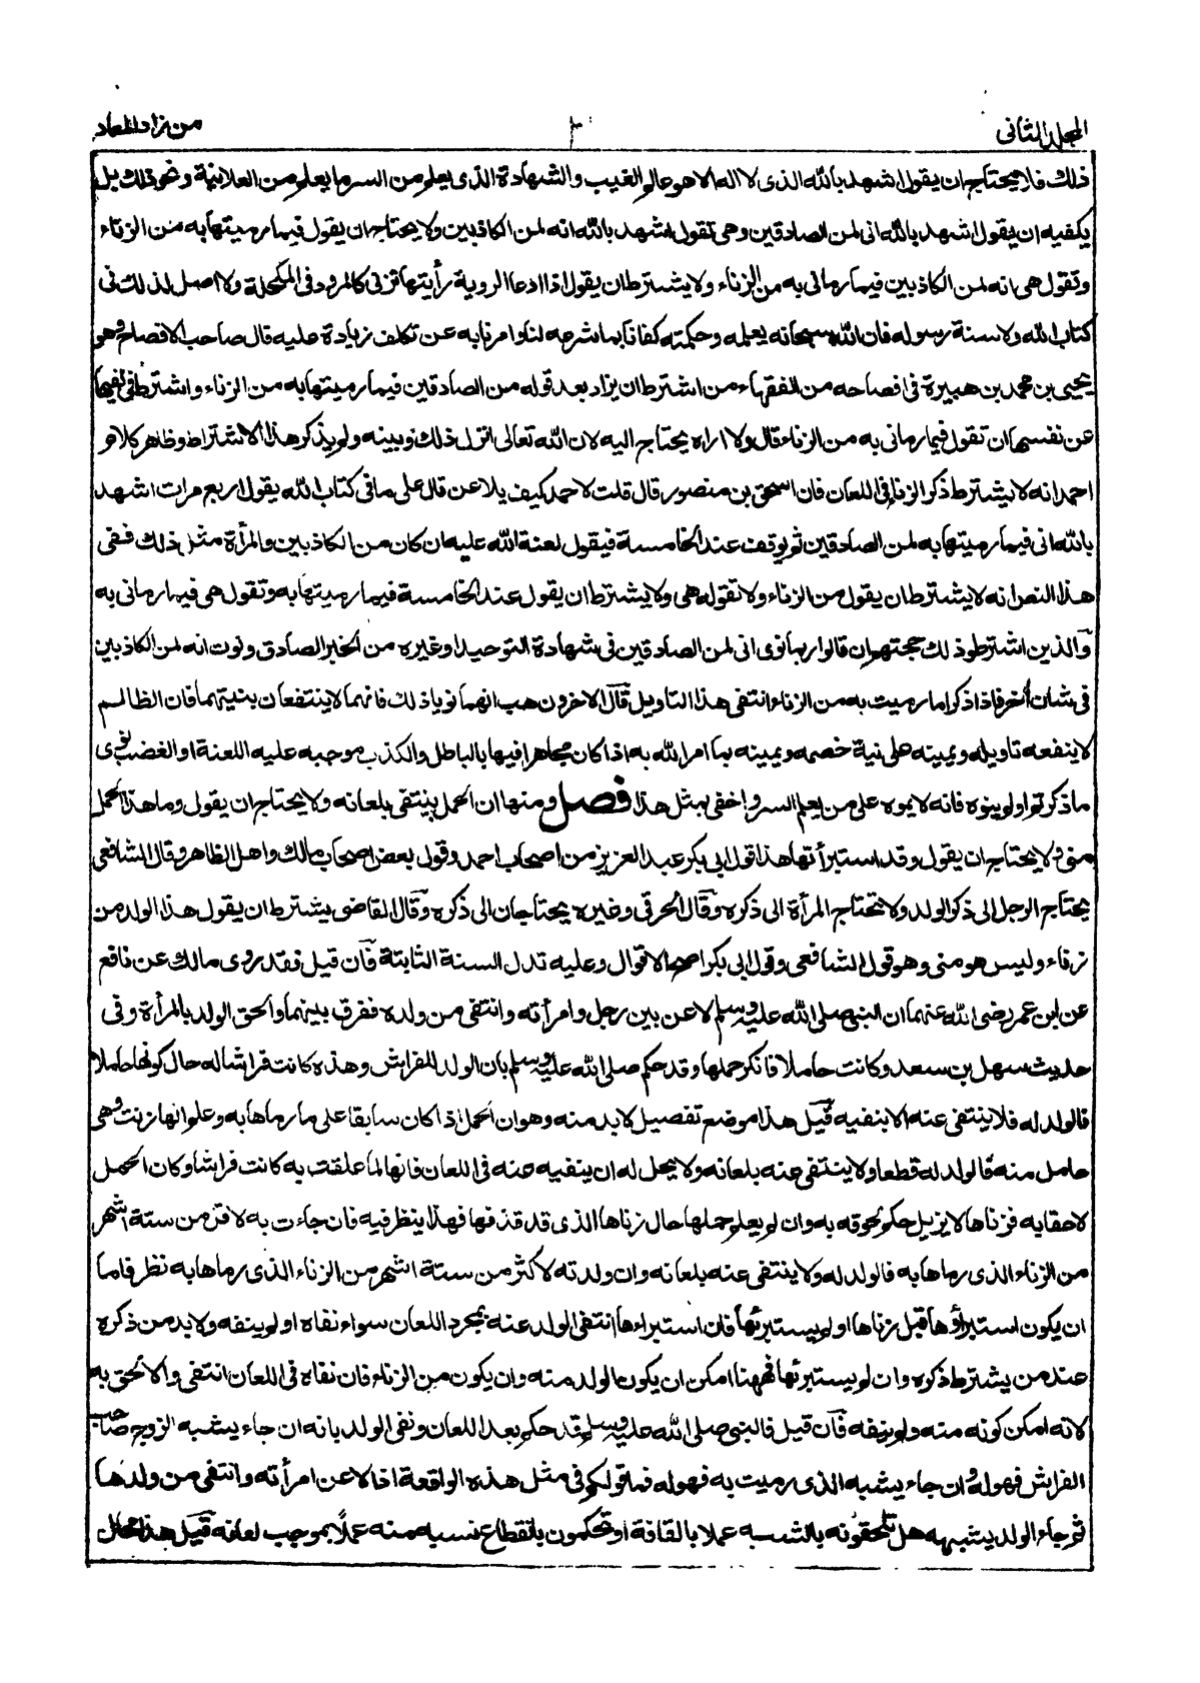 المجلد الثانى
٣
من زاد المعاد
ذلك فلا يحتاج ان يقول اشهد بالله الذى لا اله الا هو عالم الغيب والشهادة الذى يعلم من السر ما يعلم من العلانية ونحو ذلك بل
يكفيه ان يقول اشهد بالله انى لمن الصادقين وهى تقول اشهد بالله انه لمن الكاذبين ولا يحتاج ان يقول فيما رميتها به من الزناء
وتقول هى انه لمن الكاذبين فيما رمانى به من الزناء ولا يشترط ان يقول اذا ادعا الروية رأيتها تزنى كالمرود فى المكحلة ولا اصل لذلك فى
كتاب الله ولا سنة رسوله فان الله سبحانه بعلمه وحكمته كفانا بما شرعه لنا وامرنا به عن تكلف زيادة عليه قال صاحب الافصاح وهو
يحيى بن محمد بن هبيرة فى افصاحه من الفقهاء من اشترط ان يزاد بعد قوله من الصادقين فيما رميتها به من الزناء واشترط فى نفيها
عن نفسها ان تقول فيما رمانى به من الزناء قال ولا اراه يحتاج اليه لان الله تعالى انزل ذلك وبينه ولم يذكر هذا الاشتراط وظاهر كلام
احمد انه لا يشترط ذكر الزنا فى اللعان فان اسحق بن منصور قال قلت لاحمد كيف يلاعن قال على ما فى كتاب الله يقول اربع مرات اشهد
بالله انى فيما رميتها به لمن الصادقين ثم يوقف عند الخامسة فيقول لعنة الله عليه ان كان من الكاذبين والمرأة مثل ذلك ففى
هذا النص انه لا يشترط ان يقول من الزناء ولا تقوله هى ولا يشترط ان يقول عند الخامسة فيما رميتها به وتقول هى فيما رمانى به
والذين اشترطوا ذلك حجتهم ان قالوا ربما نوى انى لمن الصادقين فى شهادة التوحيد او غيره من الخبر الصادق ونوت انه لمن الكاذبين
فى شان اخر فاذا ذكرا ما رميت به من الزناء انتفى هذا التاويل قال الاخرون هب انهما نويا ذلك فانهما لا ينتفعان بنيتهما فان الظالم
لا ينفعه تاويله ويمينه على نية خصمه ويمينه بما امر الله به اذا كان مجاهرا فيها بالباطل والكذب موجبه عليه اللعنة او الغضب نوى
ما ذكرتم او لم ينوه فانه لا يموه على من يعلم السر واخفى بمثل هذا فصل ومنها ان الحمل ينتفى بلعانه ولا يحتاج ان يقول وما هذا الحمل
منى ولا يحتاج ان يقول وقد استبرأتها هذا قول ابى بكر عبد العزيز من اصحاب احمد وقول بعض اصحاب مالك واهل الظاهر وقال الشافعى
يحتاج الرجل الى ذكر الولد ولا تحتاج المرأة الى ذكره وقال الخرقى وغيره يحتاجان الى ذكره وقال القاضى يشترط ان يقول هذا الولد من
زناء وليس هو منى وهو قول الشافعى وقول ابى بكر اصح الاقوال وعليه تدل السنة الثابتة فان قيل فقد روى مالك عن نافع
عن ابن عمر رضى الله عنهما ان النبى صلى الله عليه وسلم لاعن بين رجل وامرأته وانتفى من ولده ففرق بينهما والحق الولد بالمرأة وفى
حديث سهل بن سعد وكانت حاملا فانكر حملها وقد حكم صلى الله عليه وسلم بان الولد للفراش وهذه كانت فراشا له حال كونها حاملا
فالولد له فلا ينتفى عنه الا بنفيه قيل هذا موضع تفصيل لا بد منه وهو ان الحمل اذا كان سابقا على ما رماها به وعلم انها زنت وهى
حامل منه فالولد له قطعا ولا ينتفى عنه بلعانه ولا يحل له ان ينفيه عنه فى اللعان فانها لما علقت به كانت فراشا وكان الحمل
لاحقا به فزناها لا يزيل حكم لحوقه به وان لم يعلم حملها حال زناها الذى قد قذفها فهذا ينظر فيه فان جاءت به لاقل من ستة اشهر
من الزناء الذى رماها به فالولد له ولا ينتفى عنه بلعانه وان ولدته لاكثر من ستة اشهر من الزناء الذى رماها به نظر فاما
ان يكون استبرأوها قبل زناها او لم يستبرئها فان استبراءها انتفى الولد عنه بمجرد اللعان سواء نفاه او لم ينفه ولا بد من ذكره
عند من يشترط ذكره وان لم يستبرئها فههنا امكن ان يكون الولد منه وان يكون من الزناء فان نفاه فى اللعان انتفى والا لحق به
لانه امكن كونه منه ولم ينفه فان قيل فالنبى صلى الله عليه وسلم قد حكم بعد اللعان ونفى الولد بانه ان جاء يشبه الزوج صاحب
الفراش فهو له وان جاء يشبه الذى رميت به فهو له فما قولكم فى مثل هذه الواقعة اذا لاعن امرأته وانتفى من ولدها
ثم جاء الولد يشبهه هل تلحقونه بالشبه عملا بالقافة او تحكمون بانقطاع نسبه منه عملا بموجب لعانه قيل هذا مجال